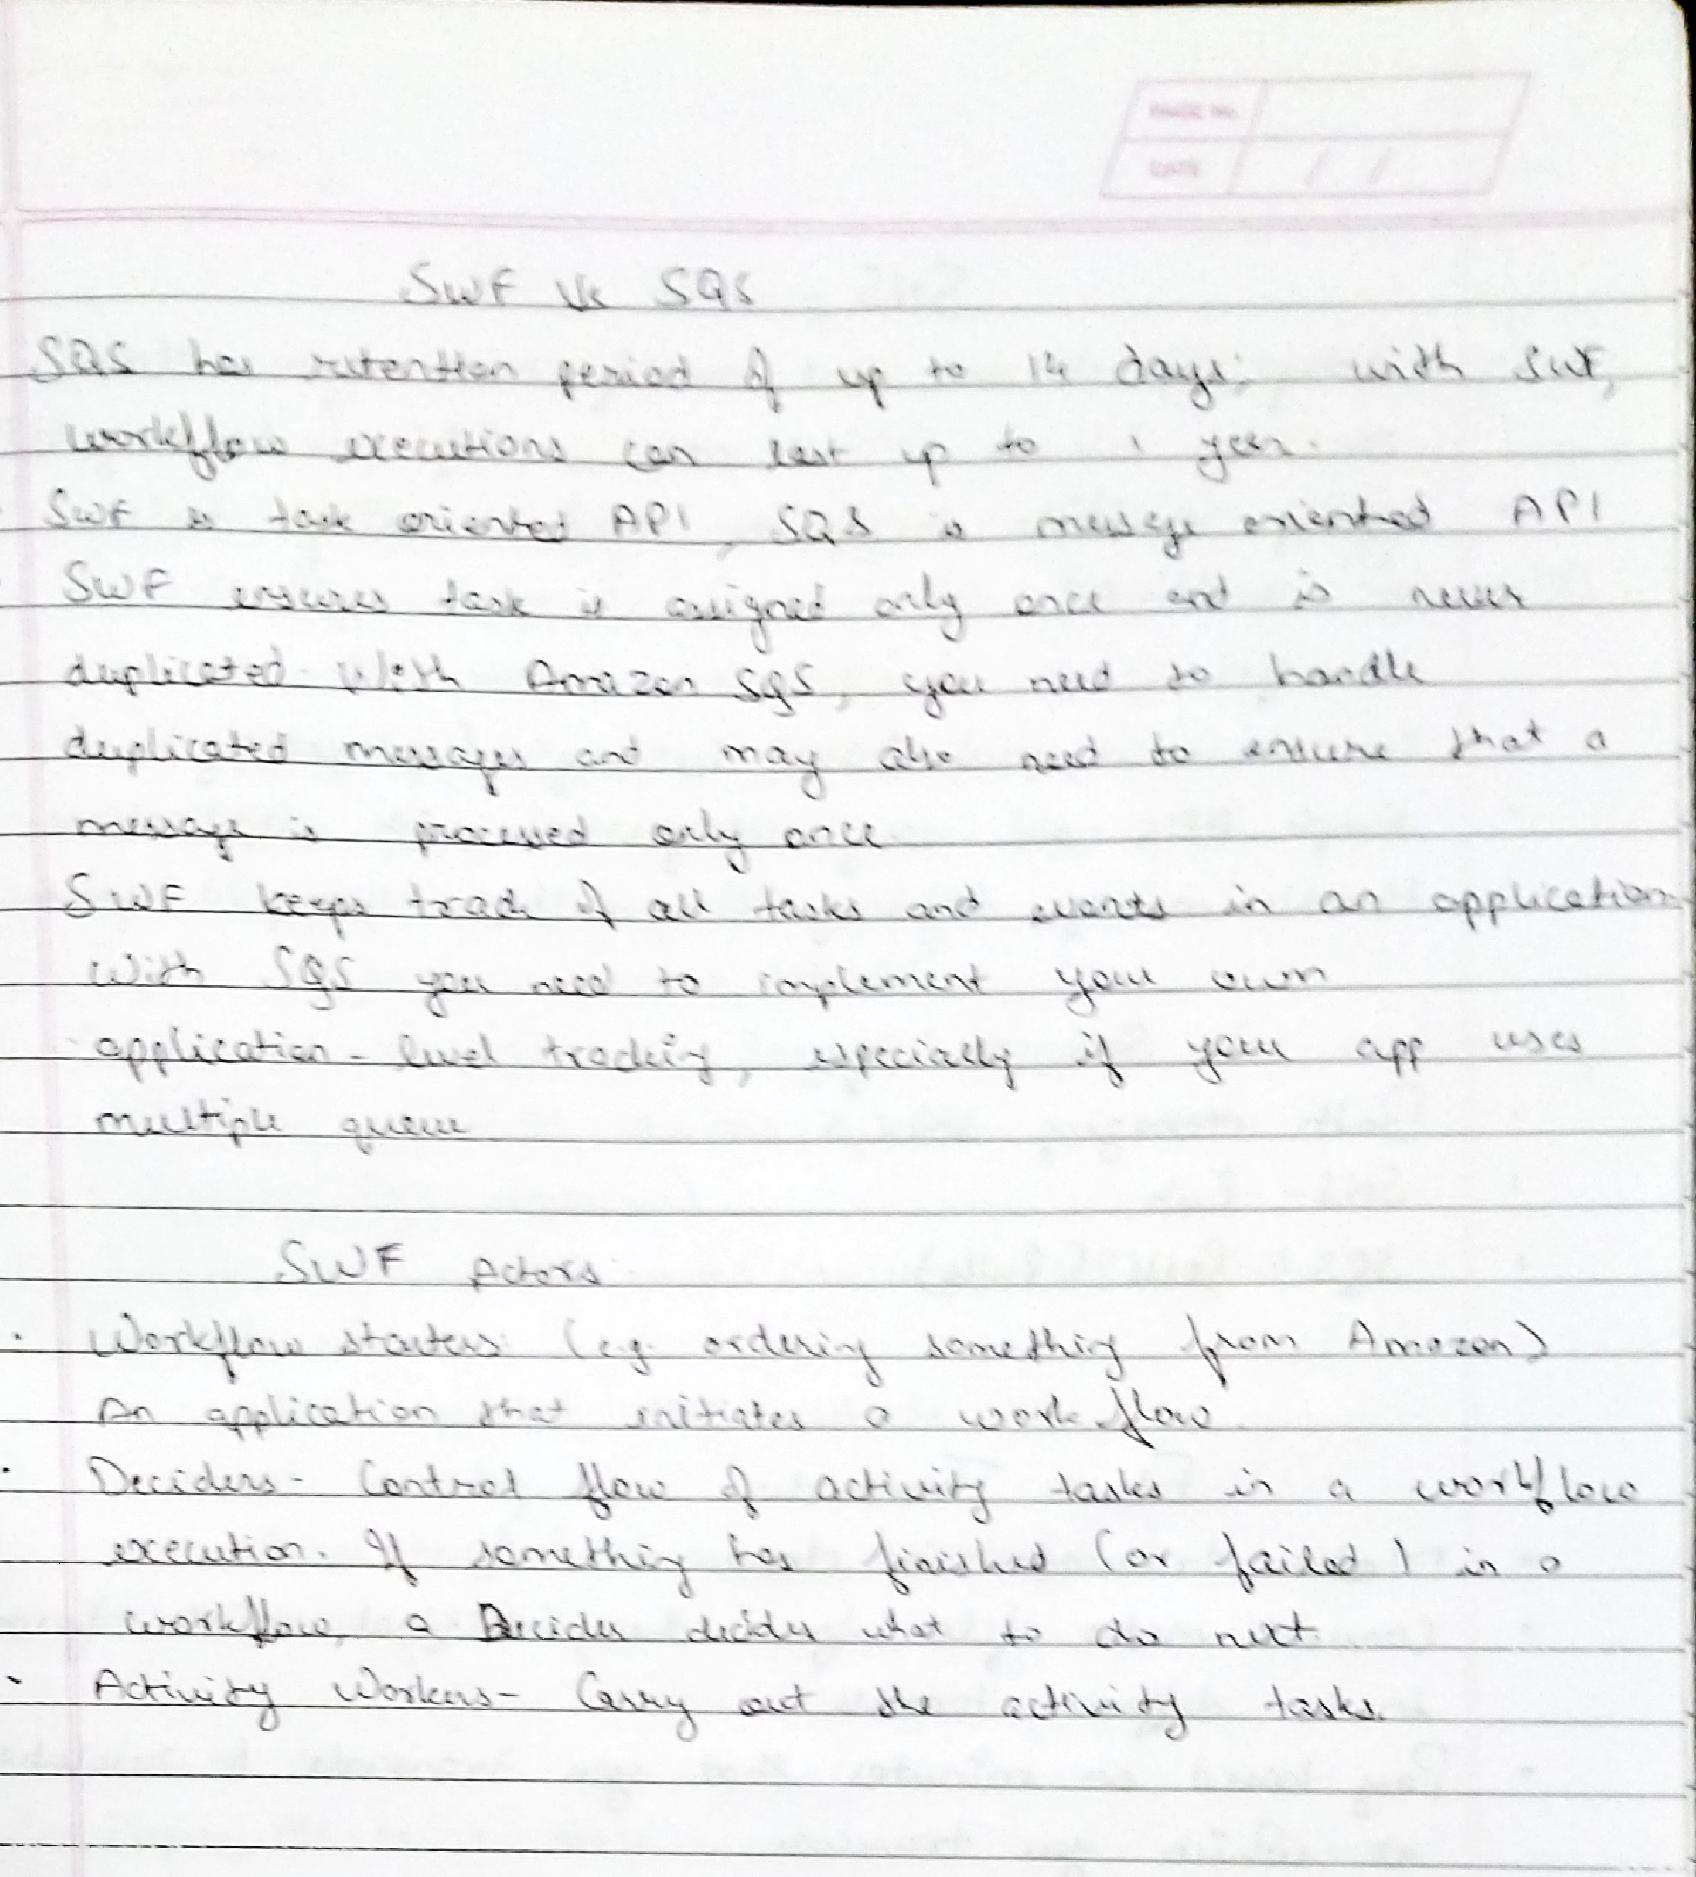 PAGE No.
DATE / /
SWF Vs SQS
SQS has retention period of up to 14 days; with SWF,
workflow executions can last up to 1 year.
SWF is task oriented API, SQS is message oriented API
SWF ensures task is assigned only once and is never
duplicated. With Amazon SQS, you need to handle
duplicated messages and may also need to ensure that a
message is processed only once.
SWF keeps track of all tasks and events in an application.
With SQS you need to implement your own
application-level tracking, especially if your app uses
multiple queue
SWF Actors
. Workflow starters: (e.g. ordering something from Amazon)
An application that initiates a workflow.
. Deciders- Control flow of activity tasks in a workflow
execution. If something has finished (or failed) in a
workflow, a Decider decides what to do next.
. Activity Workers- Carry out the activity tasks.